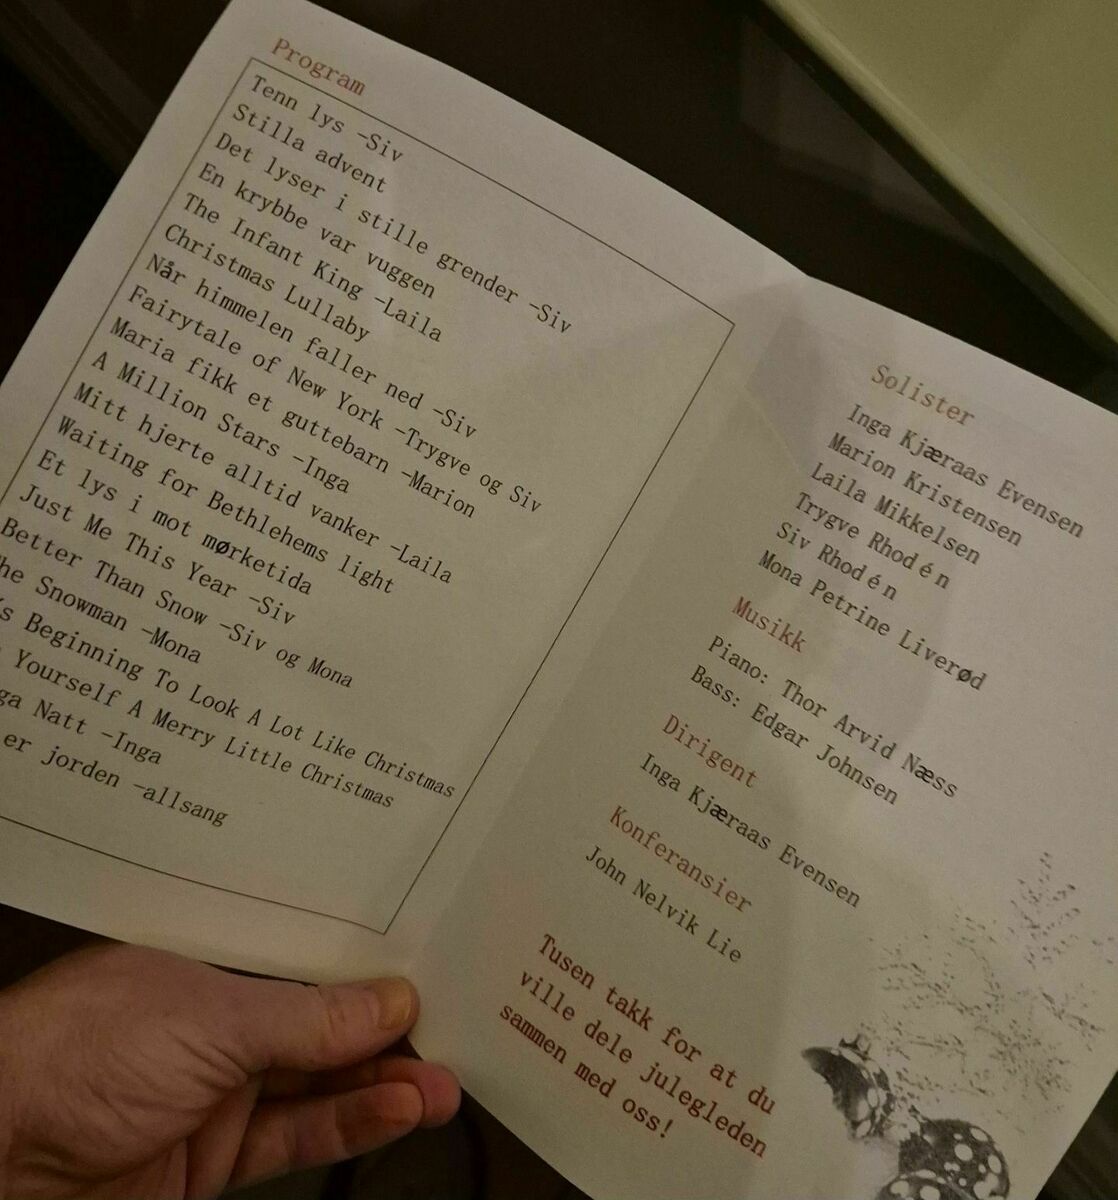 Program
Tenn lys -Siv
Stilla advent
Det lyser i stille grender -Siv
En krybbe var vuggen
The Infant King -Laila
Christmas Lullaby
Når himmelen faller ned -Siv
Fairytale of New York -Trygve og Siv
Maria fikk et guttebarn -Marion
A Million Stars -Inga
Mitt hjerte alltid vanker -Laila
Waiting for Bethlehems light
Et lys i mot mørketida
Just Me This Year -Siv
Better Than Snow -Siv og Mona
he Snowman -Mona
s Beginning To Look A Lot Like Christmas
Yourself A Merry Little Christmas
ga Natt -Inga
er jorden -allsang
Solister
Inga Kjæraas Evensen
Marion Kristensen
Laila Mikkelsen
Trygve Rhodén
Siv Rhodén
Mona Petrine Liverød
Musikk
Piano: Thor Arvid Næss
Bass: Edgar Johnsen
Dirigent
Inga Kjæraas Evensen
Konferansier
John Nelvik Lie
Tusen takk for at du
ville dele julegleden
sammen med oss!